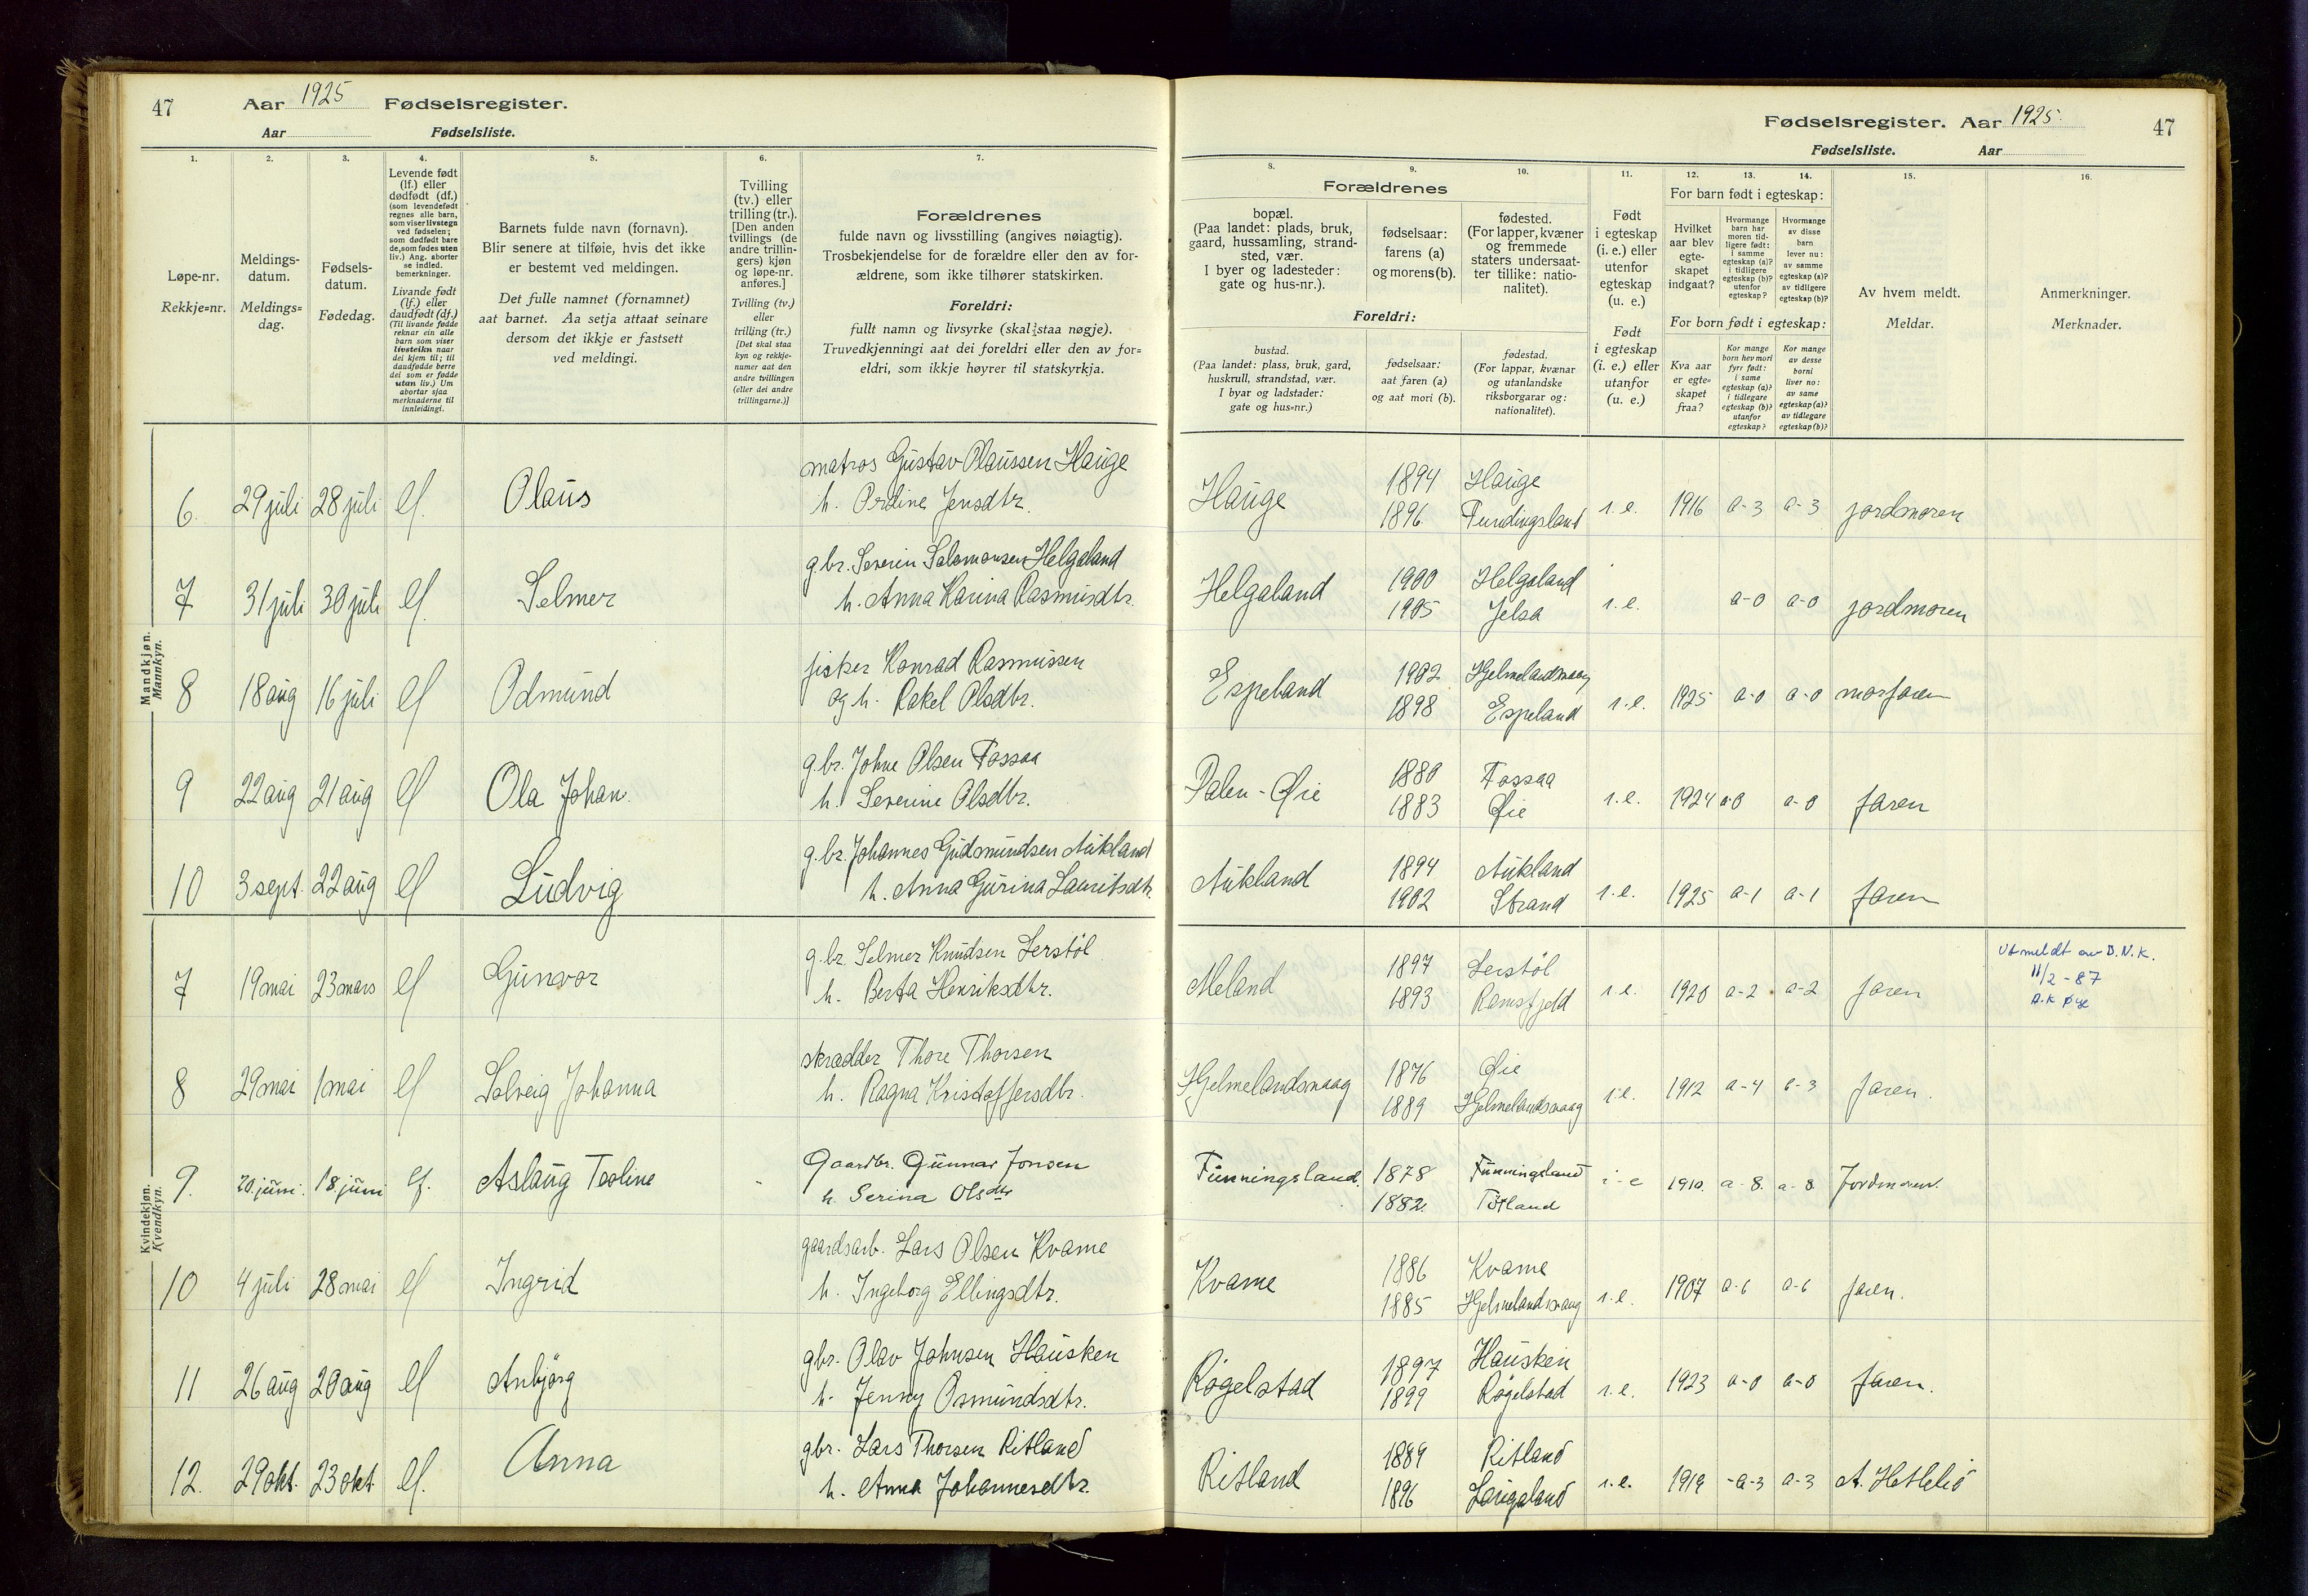 47 Aar 1925 Fødselsregister.
Aar Fødselsliste.
Fødselsregister. Aar 1925. 47
Fødselsliste. Aar
1. 2. 3. 4. 5. 6. 7. 8. 9. 10. 11. 12. 13. 14. 15. 16.
Løpe-nr.
Rekkje=nr.
Meldings-
datum.
Meldings=
dag.
Fødsels-
datum.
Fødedag.
Levende født
(lf.) eller
dødfødt (df.)
(som levendefødt
regnes alle barn,
som viser livstegn
ved fødselen;
som dødfødt bare
de, som fødes uten
liv.) Ang. aborter
se indled.
bemerkninger.
Livande født
(lf.) eller
daudfødt (df.)
(Til livande fødde
reknar ein alle
barn som viser
livsteikn naar
dei kjem til; til
daudfødde berre
dei som er fødde
utan liv.) Um
abortar sjaa
merknaderne til
innleidingi.
Barnets fulde navn (fornavn).
Blir senere at tilføie, hvis det ikke
er bestemt ved meldingen.
Det fulle namnet (fornamnet)
aat barnet. Aa setja attaat seinare
dersom det ikkje er fastsett
ved meldingi.
Tvilling
(tv.) eller
trilling (tr.).
[Den anden
tvillings (de
andre trillin-
gers) kjøn
og løpe-nr.
anføres.]
Tvilling (tv.)
eller
trilling (tr.)
[Det skal staa
kyn og rekkje-
numer aat den
andre tvillingen
(eller dei andre
trillingarne.)]
Forældrenes
fulde navn og livsstilling (angives nøiagtig).
Trosbekjendelse for de forældre eller den av for-
ældrene, som ikke tilhører statskirken.
Foreldri:
fullt namn og livsyrke (skal staa nøgje).
Truvedkjenningi aat dei foreldri eller den av for=
eldri, som ikkje høyrer til statskyrkja.
Forældrenes
bopæl.
(Paa landet: plads, bruk,
gaard, hussamling, strand-
sted, vær.
I byer og ladesteder:
gate og hus-nr.).
fødselsaar:
farens (a)
og morens (b).
fødested.
(For lapper, kvæner
og fremmede
staters undersaat-
ter tillike: natio-
nalitet).
Foreldri:
bustad.
(Paa landet: plass, bruk, gard,
huskrull, strandstad, vær.
I byar og ladstader:
gate og hus=nr.)
fødselsaar:
aat faren (a)
og aat mori (b).
fødestad.
(For lappar, kvænar
og utanlandske
riksborgarar og:
nationalitet).
Født
i egteskap
(i. e.) eller
utenfor
egteskap
(u. e.)
Født
i egteskap
(i. e.) eller
utanfor
(u. e.)
For barn født i egteskap:
Hvilket
aar blev
egte-
skapet
indgaat?
Hvormange
barn har
moren tid-
ligere født:
i samme
egteskap (a)?
i tidligere
egteskap (b)?
utenfor
egteskap?
Hvormange
av disse
barn
lever nu:
av samme
egteskap (a)?
av tidligere
egteskap (b)?
For born født i egteskap:
Kva aar
er egte=
skapet
fraa?
Kor mange
born hev mori
fyrr født:
i same
egteskap (a)?
i tidlegare
egteskap (b)?
utanfor
egteskap?
Kor mange
av desse
borni
liver no:
av same
egteskap (a)?
av tidlegare
egteskap (b)?
Av hvem meldt.
Meldar.
Anmerkninger.
Merknader.
Mandkjøn.
Mannkyn.
6. 29 juli 28 juli lf. Olaus matros Gustav Olaussen Hauge
h. Ordine Jensdtr. Hauge 1894 1896 Hauge Fundingsland i.e. 1916 a-3 a-3 jordmoren
7 31 juli 30 juli lf. Selmer g.br. Severin Salomonsen Helgaland
h. Anna Karina Rasmusdtr. Helgaland 1900 1905 Helgaland Jelsa i.e. a-0 a-0 jordmoren
8 18 aug 16 juli lf Odmund fisker Konrad Rasmussen
og h. Rakel Olsdtr. Espeland 1902 1898 Hjelmelandsvaag Espeland i.e. 1925 a-0 a-0 morfaren
9 22 aug 21 aug lf Ola Johan. g.br. Johne Olsen Fossaa
h. Severine Olsdtr. Dalen-Øie 1880 1883 Fossaa Øie i.e. 1924 a-0 a-0 faren
10 3 sept. 22 aug lf Ludvig g.br. Johannes Gudmundsen Aukland
h. Anna Gurina Lauritsdtr. Aukland 1894 1902 Aukland Strand i.e. 1925 a-1 a-1 faren
Kvindekjøn.
Kvendkyn.
7 19 mai 23 mars lf Gunvor g.br. Selmer Knudsen Lerstöl
h. Berta Henriksdtr. Meland 1897 1893 Lerstöl Ramsfjeld i.e. 1920 a-2 a-2 faren Utmeldt av D.N.K.
11/2-87
A.K Øye
8 29 mai 1 mai lf Solveig Johanna skrædder Thore Thorsen
h. Ragna Kristoffersdtr. Hjelmelandsvaag 1876 1889 Øie Hjelmelandsvaag i.e. 1912 a-4 a-3 faren.
9. 20. juni. 18. juni lf. Aslaug Toline Gaardbr. Gunnar Jonsen
h. Serina Olsdtr Funningsland. 1878 1882. Funningsland Tøtland i-e 1910. a-8. a-8 Jordmoren.
10 4 juli 28 mai lf Ingrid gaardsarb. Lars Olsen Kvame
h. Ingeborg Ellingsdtr. Kvame 1886 1885 Kvame Hjelmelandsvaag i.e. 1907 a-6 a-6 faren.
11 26 aug 20 aug lf Anbjörg gbr. Olav Johnsen Hausken
h. Jenny Osmundsdtr. Rögelstad 1897 1899 Hausken Rögelstad i.e. 1923 a-0 a-0 faren.
12. 29 okt. 23 okt. lf. Anna gbr. Lars Thorsen Ritland
h. Anna Johannesdtr. Ritland 1889 1896 Ritland Laugaland i.e. 1919 -a-3 a-3 A. Hetlelid